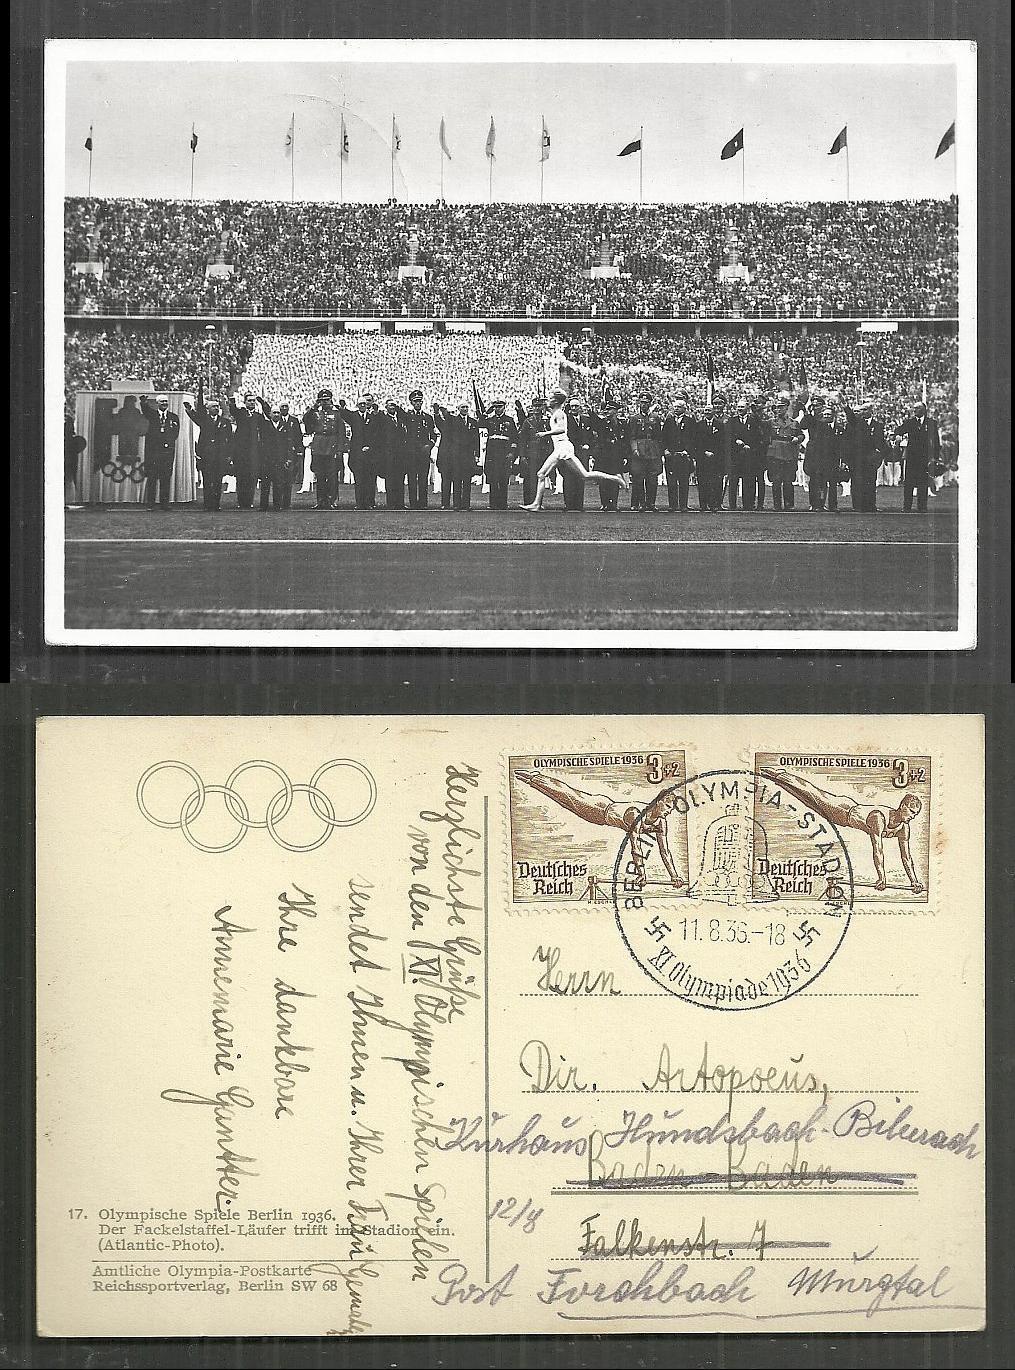 OLYMPISCHE SPIELE 1936 3+2
Deutsches
Reich
OLYMPISCHE SPIELE 1936 3+2
Deutsches
Reich
BERLIN OLYMPIA-STADION
11.8.36.-18
XI. Olympiade 1936
Herzlichste Grüße
von den XI. Olympischen Spielen
sendet Ihnen u. Ihrer Frau Gemahlin
Ihre dankbare
Annemarie Gantter.
Herrn
Dir. Artopoeus,
Kurhaus Hundsbach-Biberach
Baden-Baden
12/8
Falkenstr. 7
Post Forchbach Murgtal
17. Olympische Spiele Berlin 1936.
Der Fackelstaffel-Läufer trifft im Stadion ein.
(Atlantic-Photo).
Amtliche Olympia-Postkarte
Reichssportverlag, Berlin SW 68